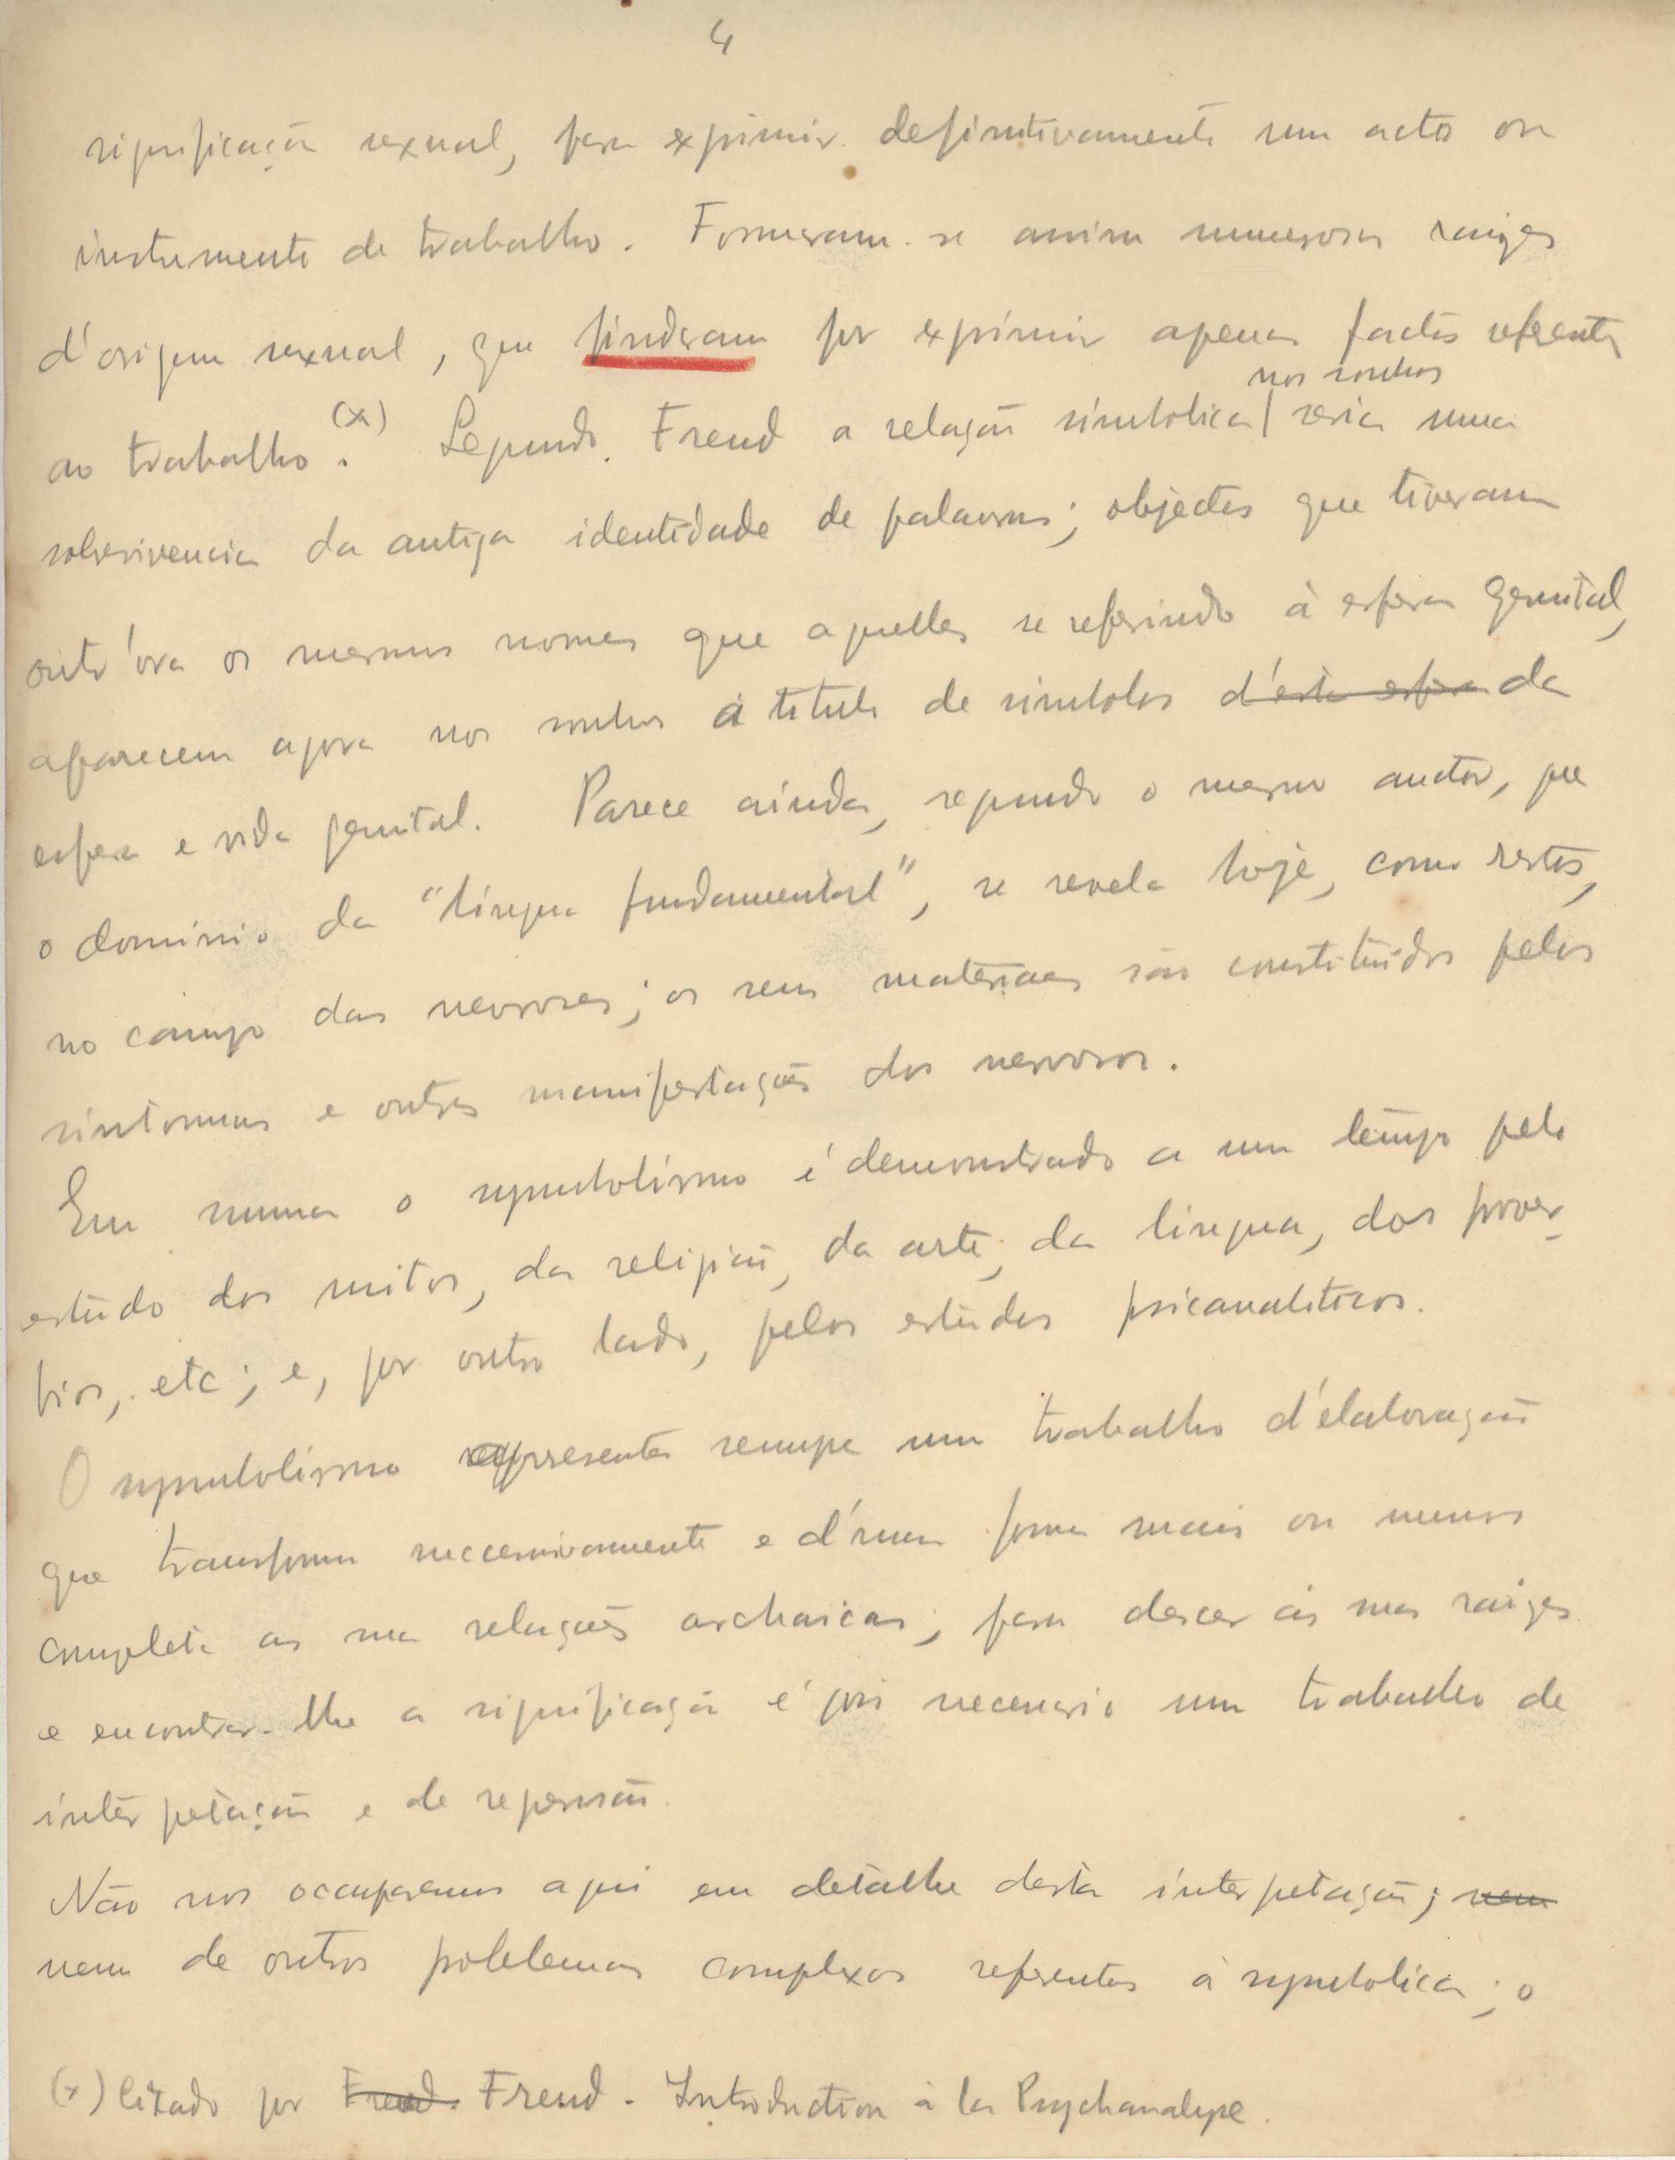 4
significação sexual, para exprimir definitivamente um acto ou
instrumento de trabalho. Formaram-se assim numerosas raizes
d'origem sexual, que findaram por exprimir apenas factos referentes
nos sonhos
ao trabalho.(x) Segundo Freud a relação simbolica| seria uma
sobrevivencia da antiga identidade de palavras; objectos que tiveram
outr'ora os mesmos nomes que aquelles se referindo à esfera genital,
aparecem agora nos sonhos á titulo de simbolos d'esta esfera da
esfera e vida genital. Parece ainda, segundo o mesmo auctor, que
o dominio da "lingua fundamental", se revela hoje, como restos,
no campo das nevroses; os seus materiaes são constituidos pelos
sintomas e outras manifestações dos nervosos.
Em summa o symbolismo é demonstrado a um tempo pelo
estudo dos mitos, da religião, da arte, da lingua, dos prover-
bios, etc; e, por outro lado, pelos estudos psicanaliticos.
O symbolismo representa sempre um trabalho d'élaboração
que transforma successivamente e d'uma forma mais ou menos
completa as suas relações archaicas; para descer ás suas raizes
e encontrar-lhe a significação é pois necessario um trabalho de
interpetação e de regressão.
Não nos occuparemos aqui em detalhe desta interpetação; nem
nem de outros poblemas complexos referentes á symbolica; o
(x) Citado por Freud. Freud - Introduction à la Psychanalyse.